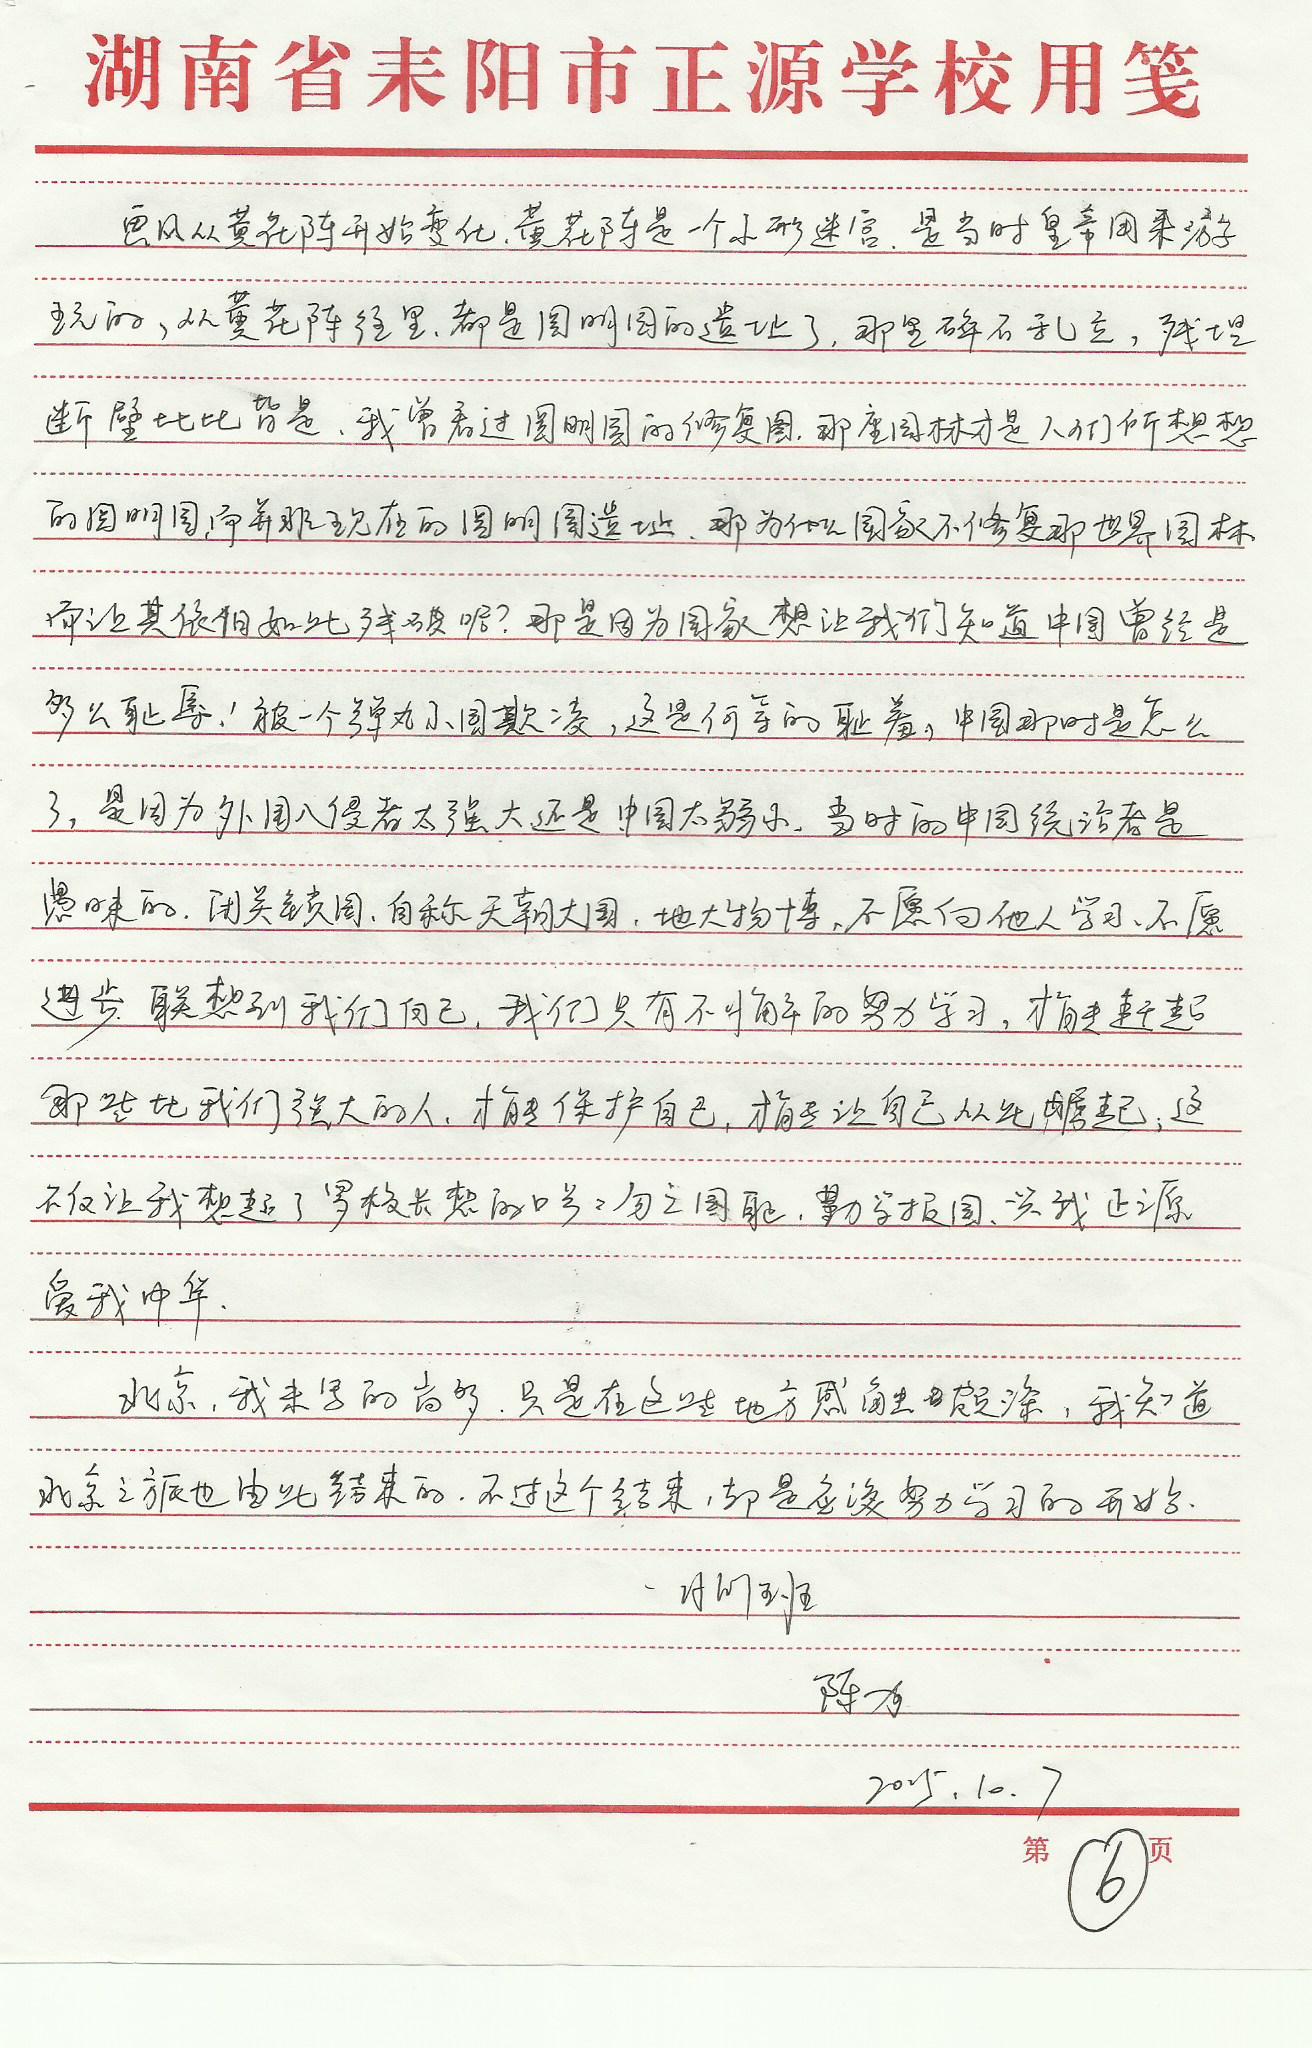 湖南省耒阳市正源学校用笺
画风从黄花阵开始变化.黄花阵是一个小形迷宫.是当时皇帝用来游
玩的,从黄花阵往里.都是圆明园的遗址了.那里碎石乱立,残垣
断壁比比皆是.我曾看过圆明园的修复图.那座园林才是人们所想想
的圆明园,而并非现在的圆明园遗址.那为什么国家不修复那世界园林
而让其依旧如此残破呢?那是因为国家想让我们知道中国曾经是
多么耻辱!被一个弹丸小国欺凌,这是何等的耻羞,中国那时是怎么
了,是因为外国入侵者太强大还是中国太弱小.当时的中国统治者是
愚昧的.闭关锁国.自称天朝大国.地大物博.不愿向他人学习.不愿
进步.联想到我们自己,我们只有不懈的努力学习,才能赶起
那些比我们强大的人.才能保护自己,才能让自己从此崛起;这
不仅让我想起了罗校长想的口号:勿忘国耻.勤学报国.兴我正源
爱我中华.
北京,我未写的尚多.只是在这些地方感触颇深,我知道
北京之旅也由此结束的.不过这个结束,却是应该努力学习的开始.
陈
2015.10.7
第6页